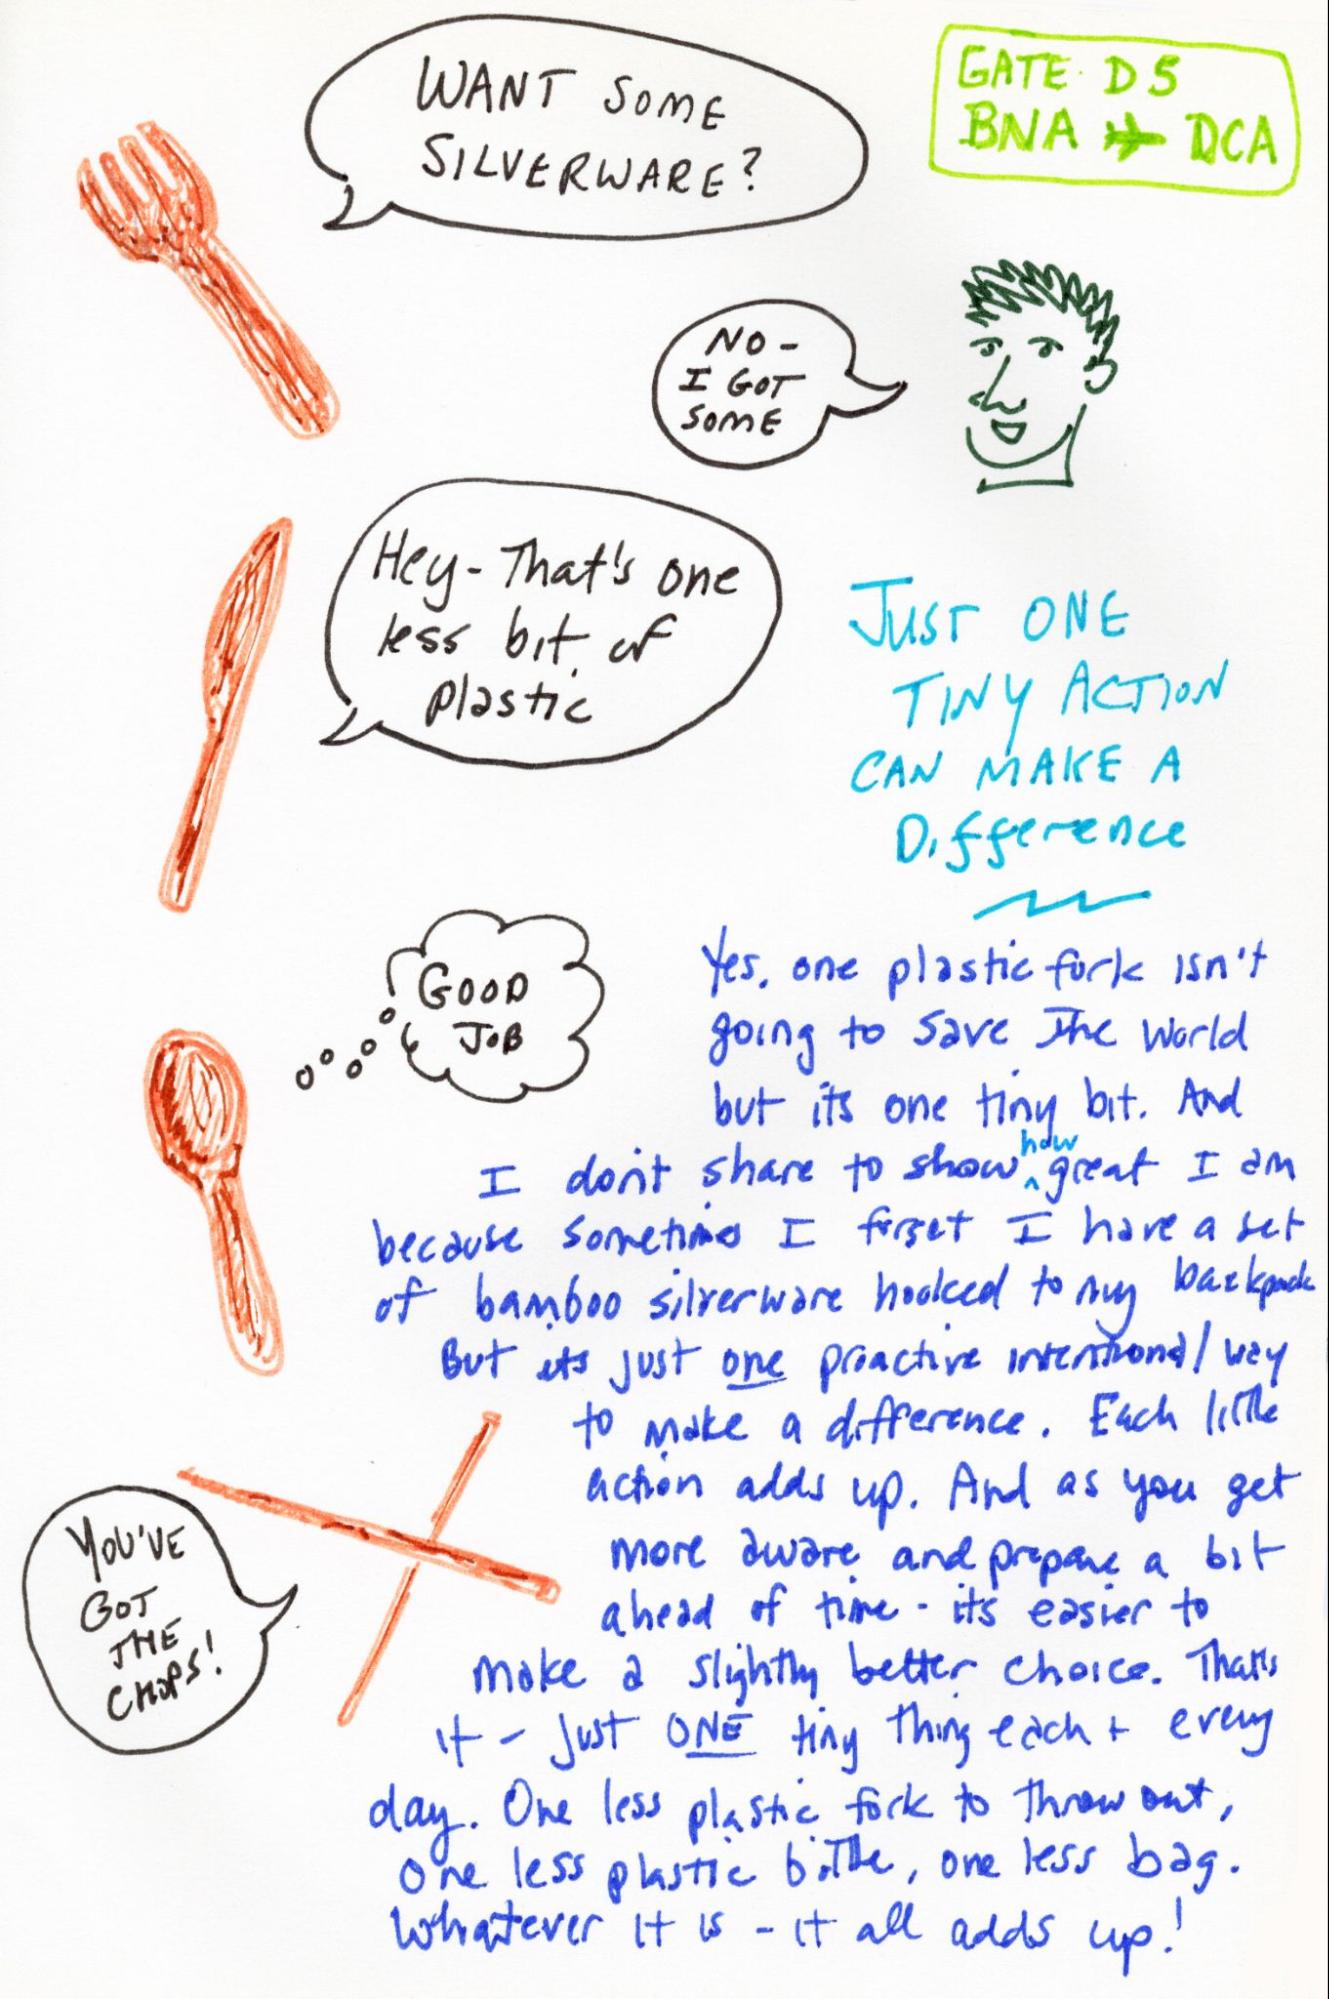 WANT SOME
SILVERWARE?
GATE D5
BNA DCA
NO -
I GOT
SOME
Hey - That's one
less bit of
plastic
JUST ONE
TINY ACTION
CAN MAKE A
Difference
GOOD
JOB
Yes, one plastic fork isn't
going to save the world
but its one tiny bit. And
I don't share to show how great I am
because sometimes I forget I have a set
of bamboo silverware hooked to my backpack
But its just one proactive intentional way
to make a difference. Each little
action adds up. And as you get
more aware and prepare a bit
ahead of time - its easier to
make a slightly better choice. That's
it - just ONE tiny thing each + every
day. One less plastic fork to throw out,
one less plastic bottle, one less bag.
Whatever it is - it all adds up!
YOU'VE
GOT
THE
CHOPS!